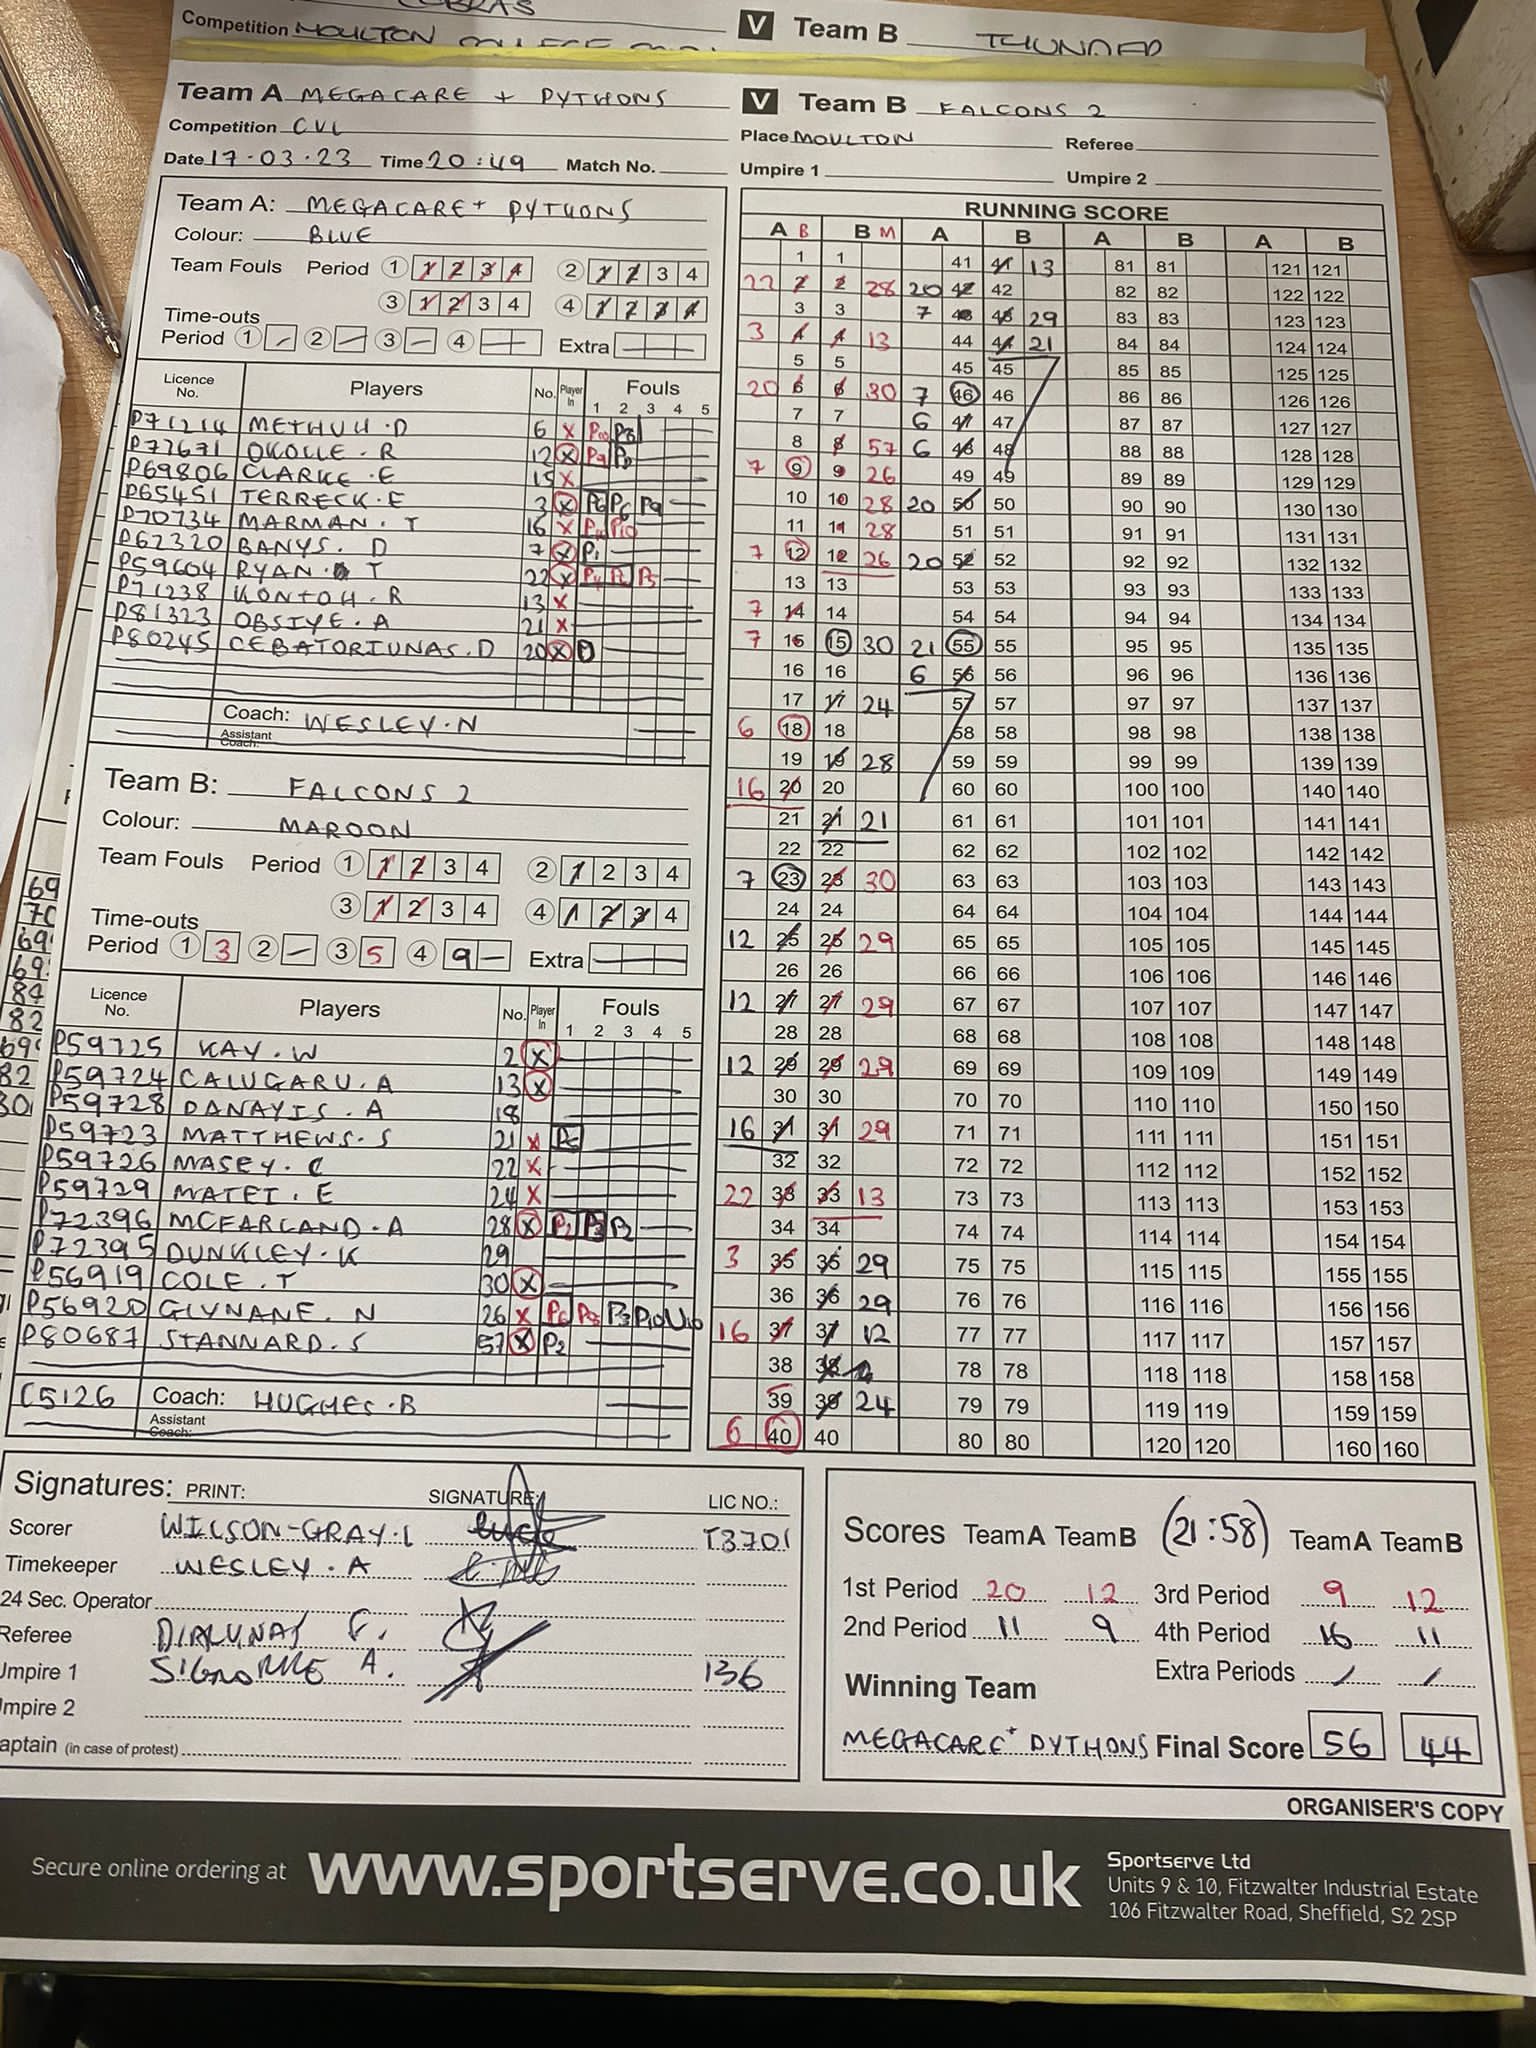 COBRAS
Competition MOULTON COLLEGE
V Team B THUNDER
Team A MEGACARE + PYTHONS V Team B FALCONS 2
Competition CVL Place MOULTON Referee
Date 17.03.23 Time 20:49 Match No. Umpire 1 Umpire 2
Team A: MEGACARE+ PYTHONS
Colour: BLUE
Team Fouls Period 1 1 2 3 4 2 1 2 3 4
3 1 2 3 4 4 1 2 3 4
Time-outs
Period 1 2 3 4 Extra
Licence No. Players No. Player In Fouls
1 2 3 4 5
P71214 METHUH.D 6 X
P77671 OKOLLE.R 12 X
P69806 CLARKE.E 15 X
P65451 TERRECK.E 3 X
P70734 MARMAN.T 16 X
P62320 BANYS.D 7 X P1
P59604 RYAN.T 22 X
P71238 KONTOH.R 13 X
P81323 OBSIYE.A 21 X
P80245 CEBATORIUNAS.D 20 X
Coach: WESLEY.N
Assistant Coach:
Team B: FALCONS 2
Colour: MAROON
Team Fouls Period 1 1 2 3 4 2 1 2 3 4
3 1 2 3 4 4 1 2 3 4
Time-outs
Period 1 3 2 3 5 4 9 Extra
Licence No. Players No. Player In Fouls
1 2 3 4 5
P59725 KAY.W 2 X
P59724 CALUGARU.A 13 X
P59728 DANAYIS.A 18
P59723 MATTHEWS.S 21 X
P59726 MASEY.C 22 X
P59729 MATEI.E 24 X
P72396 MCFARLAND.A 28 X P2 P3 P2
P72395 DUNKLEY.K 29
P56919 COLE.T 30 X
P56920 GLYNANE.N 26 X
P80687 STANNARD.S 57 X P2
C5126 Coach: HUGHES.B
Assistant Coach:
RUNNING SCORE
A B B M A B A B A B
1 1 41 41 13 81 81 121 121
22 2 2 28 20 42 42 82 82 122 122
3 3 7 43 43 29 83 83 123 123
3 4 4 13 44 44 21 84 84 124 124
5 5 45 45 85 85 125 125
20 6 6 30 7 46 46 86 86 126 126
7 7 6 47 47 87 87 127 127
8 8 57 6 48 48 88 88 128 128
7 9 9 26 49 49 89 89 129 129
10 10 28 20 50 50 90 90 130 130
11 11 28 51 51 91 91 131 131
7 12 12 26 20 52 52 92 92 132 132
13 13 53 53 93 93 133 133
7 14 14 54 54 94 94 134 134
7 15 15 30 21 55 55 95 95 135 135
16 16 6 56 56 96 96 136 136
17 17 24 57 57 97 97 137 137
6 18 18 58 58 98 98 138 138
19 19 28 59 59 99 99 139 139
16 20 20 60 60 100 100 140 140
21 21 21 61 61 101 101 141 141
22 22 62 62 102 102 142 142
7 23 23 30 63 63 103 103 143 143
24 24 64 64 104 104 144 144
12 25 25 29 65 65 105 105 145 145
26 26 66 66 106 106 146 146
12 27 27 29 67 67 107 107 147 147
28 28 68 68 108 108 148 148
12 29 29 29 69 69 109 109 149 149
30 30 70 70 110 110 150 150
16 31 31 29 71 71 111 111 151 151
32 32 72 72 112 112 152 152
22 33 33 13 73 73 113 113 153 153
34 34 74 74 114 114 154 154
3 35 35 29 75 75 115 115 155 155
36 36 29 76 76 116 116 156 156
16 37 37 12 77 77 117 117 157 157
38 38 78 78 118 118 158 158
39 39 24 79 79 119 119 159 159
6 40 40 80 80 120 120 160 160
Signatures: PRINT: SIGNATURE: LIC NO.:
Scorer WILSON-GRAY.L T3701
Timekeeper WESLEY.A
24 Sec. Operator
Referee
Umpire 1 136
Umpire 2
aptain (in case of protest)
Scores Team A Team B (21:58) Team A Team B
1st Period 20 12 3rd Period 9 12
2nd Period 11 9 4th Period 16 11
Extra Periods
Winning Team
MEGACARE+ PYTHONS Final Score 56 44
ORGANISER'S COPY
Secure online ordering at www.sportserve.co.uk
Sportserve Ltd
Units 9 & 10, Fitzwalter Industrial Estate
106 Fitzwalter Road, Sheffield, S2 2SP